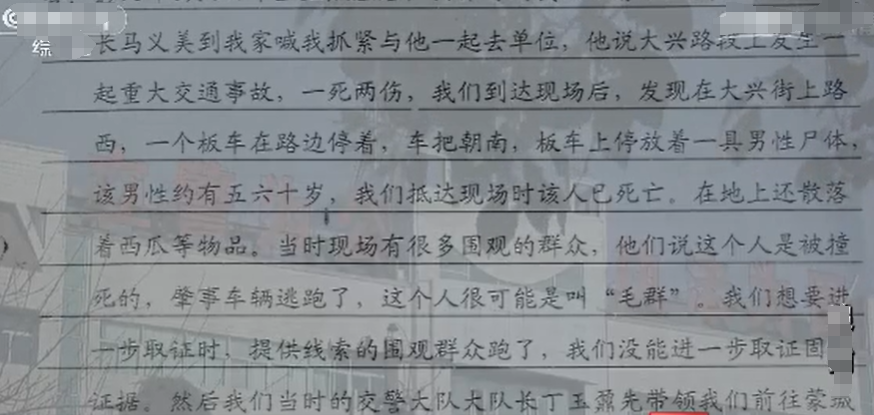 综
长马义美到我家喊我抓紧与他一起去单位，他说大兴路段上发生一
起重大交通事故，一死两伤，我们到达现场后，发现在大兴街上路
西，一个板车在路边停着，车把朝南，板车上停放着一具男性尸体，
该男性约有五六十岁，我们抵达现场时该人已死亡。在地上还散落
着西瓜等物品。当时现场有很多围观的群众，他们说这个人是被撞
死的，肇事车辆逃跑了，这个人很可能是叫“毛群”。我们想要进
一步取证时，提供线索的围观群众跑了，我们没能进一步取证固
证据。然后我们当时的交警大队大队长丁玉鼐先带领我们前往蒙城